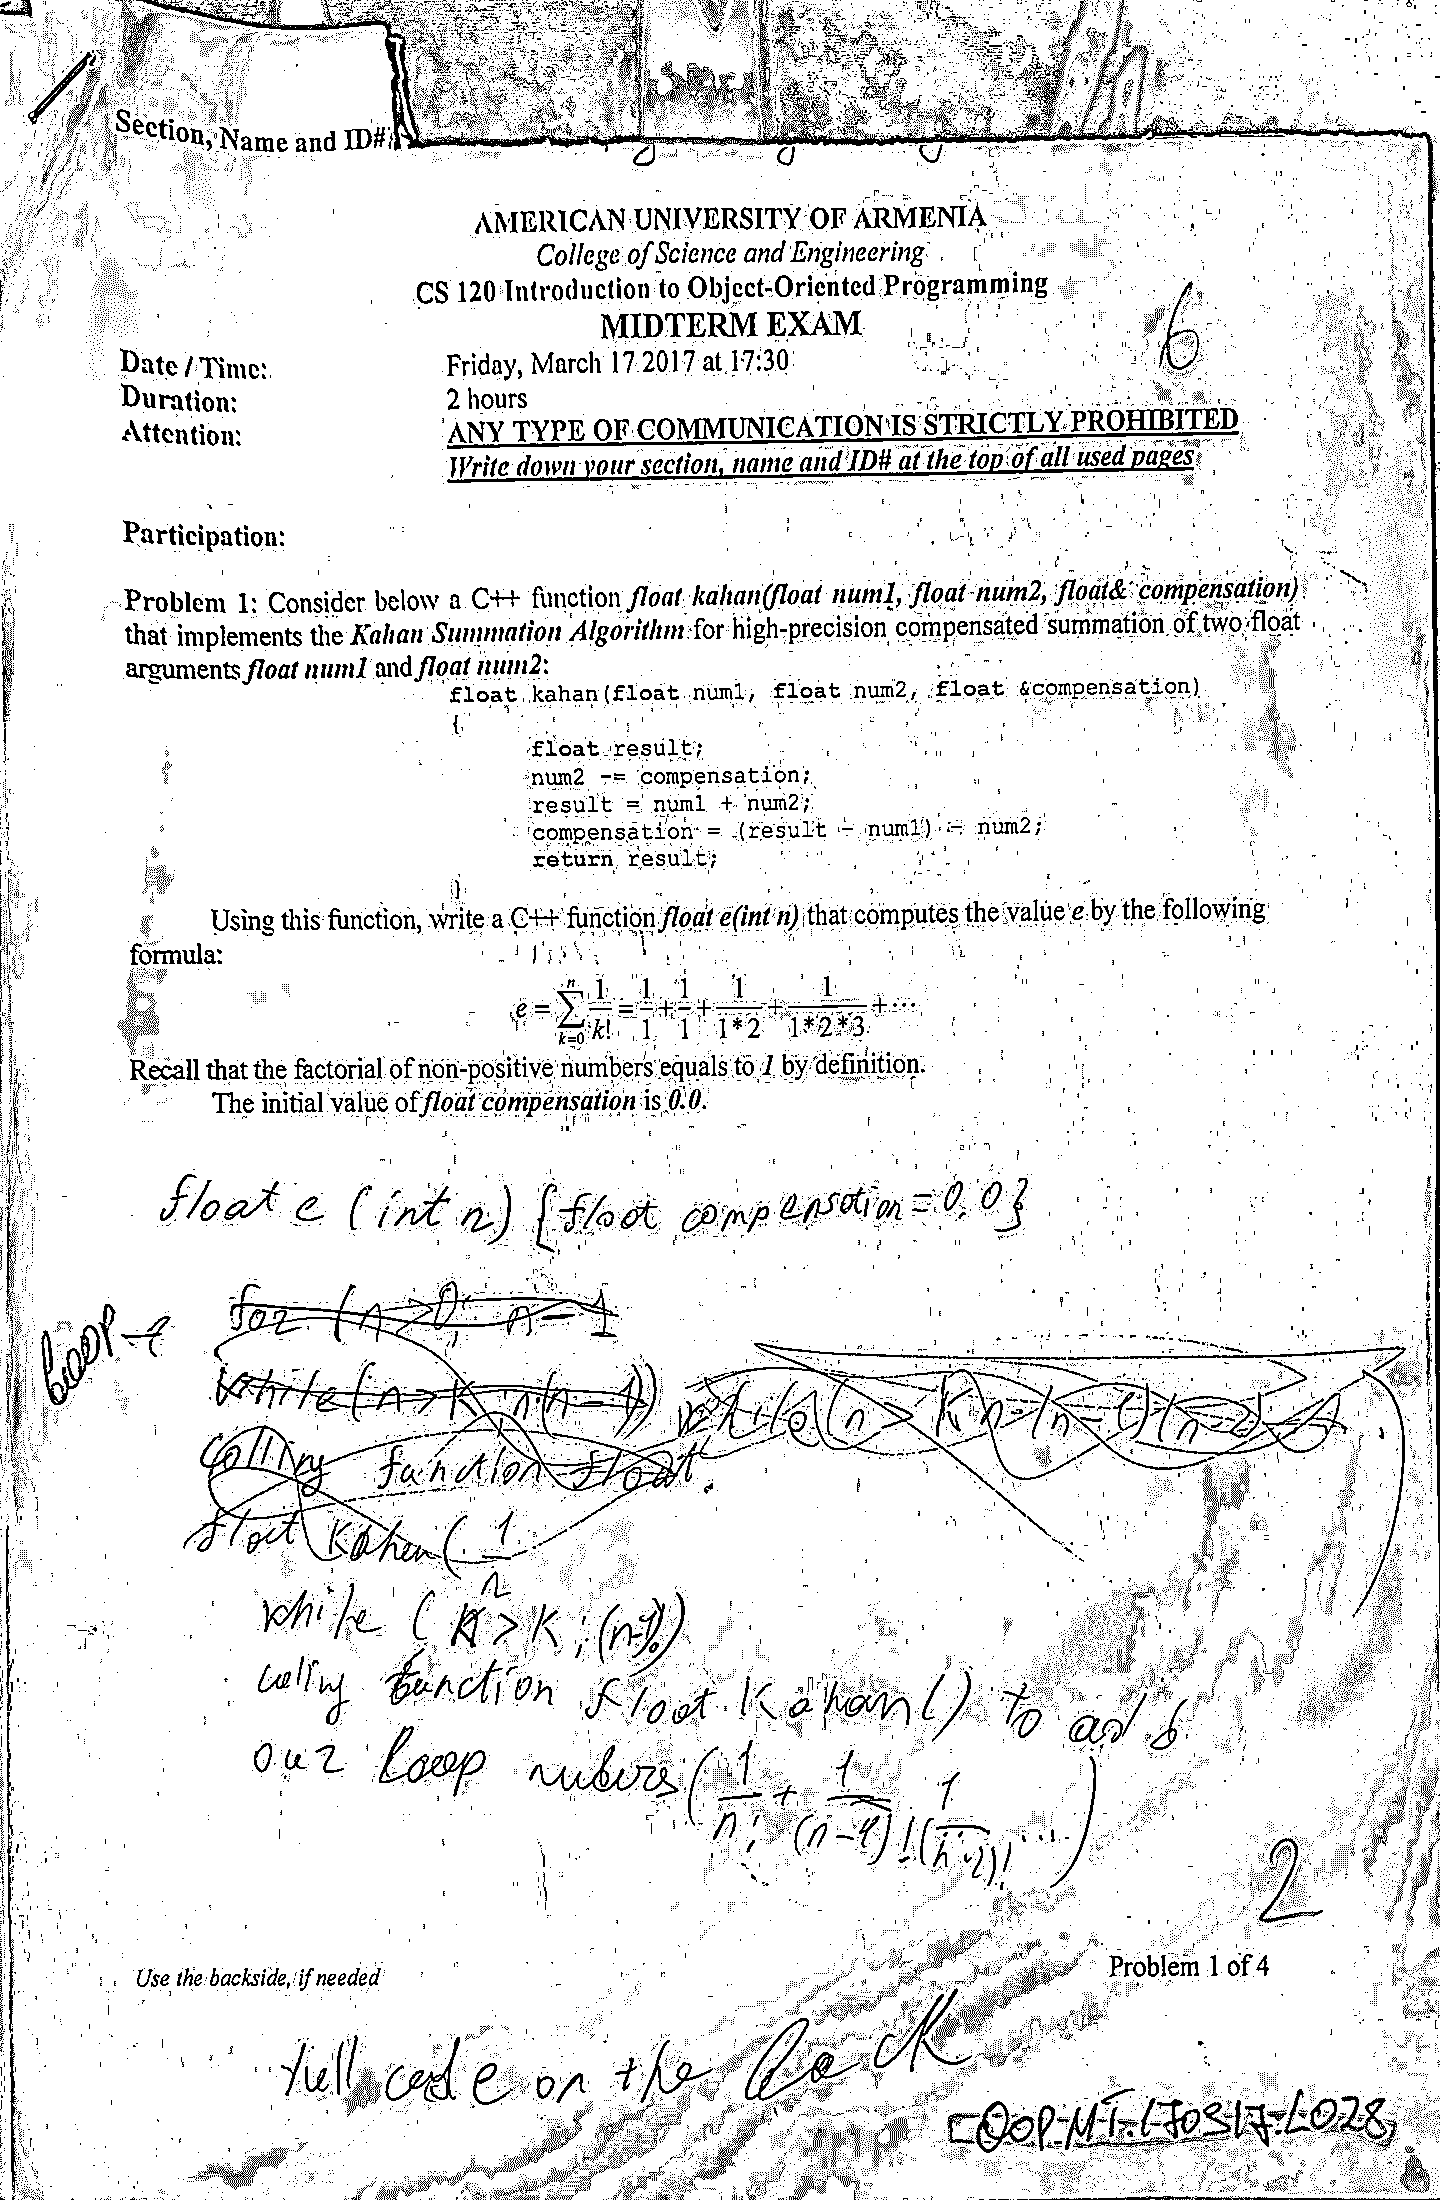 Section, Name and ID#
AMERICAN UNIVERSITY OF ARMENIA
College of Science and Engineering
CS 120 Introduction to Object-Oriented Programming
MIDTERM EXAM
6
Date / Time: Friday, March 17 2017 at 17:30
Duration: 2 hours
Attention: ANY TYPE OF COMMUNICATION IS STRICTLY PROHIBITED
Write down your section, name and ID# at the top of all used pages
Participation:
Problem 1: Consider below a C++ function float kahan(float num1, float num2, float& compensation)
that implements the Kahan Summation Algorithm for high-precision compensated summation of two float
arguments float num1 and float num2:
float kahan(float num1, float num2, float &compensation)
{
float result;
num2 -= compensation;
result = num1 + num2;
compensation = (result - num1) - num2;
return result;
}
Using this function, write a C++ function float e(int n) that computes the value e by the following
formula:
e = \sum_{k=0}^{n} 1/k! = 1/1 + 1/1 + 1/1*2 + 1/1*2*3 + ···
Recall that the factorial of non-positive numbers equals to 1 by definition.
The initial value of float compensation is 0.0.
float e (int n) {float compensation = 0.0}
for (n>0; n-1
Loop
while (n>K; n(n-1)) while (n>K n-(n-1)(n-2)
calling function float.
float Kahan( 1/n
while ( n>K; (n-1)!)
calling function float Kahan() to add
our loop (1/n! + 1/(n-1)! 1/(n-2)! ...)
2
Use the backside, if needed Problem 1 of 4
full code on the back
OOP.MT.170317.L028